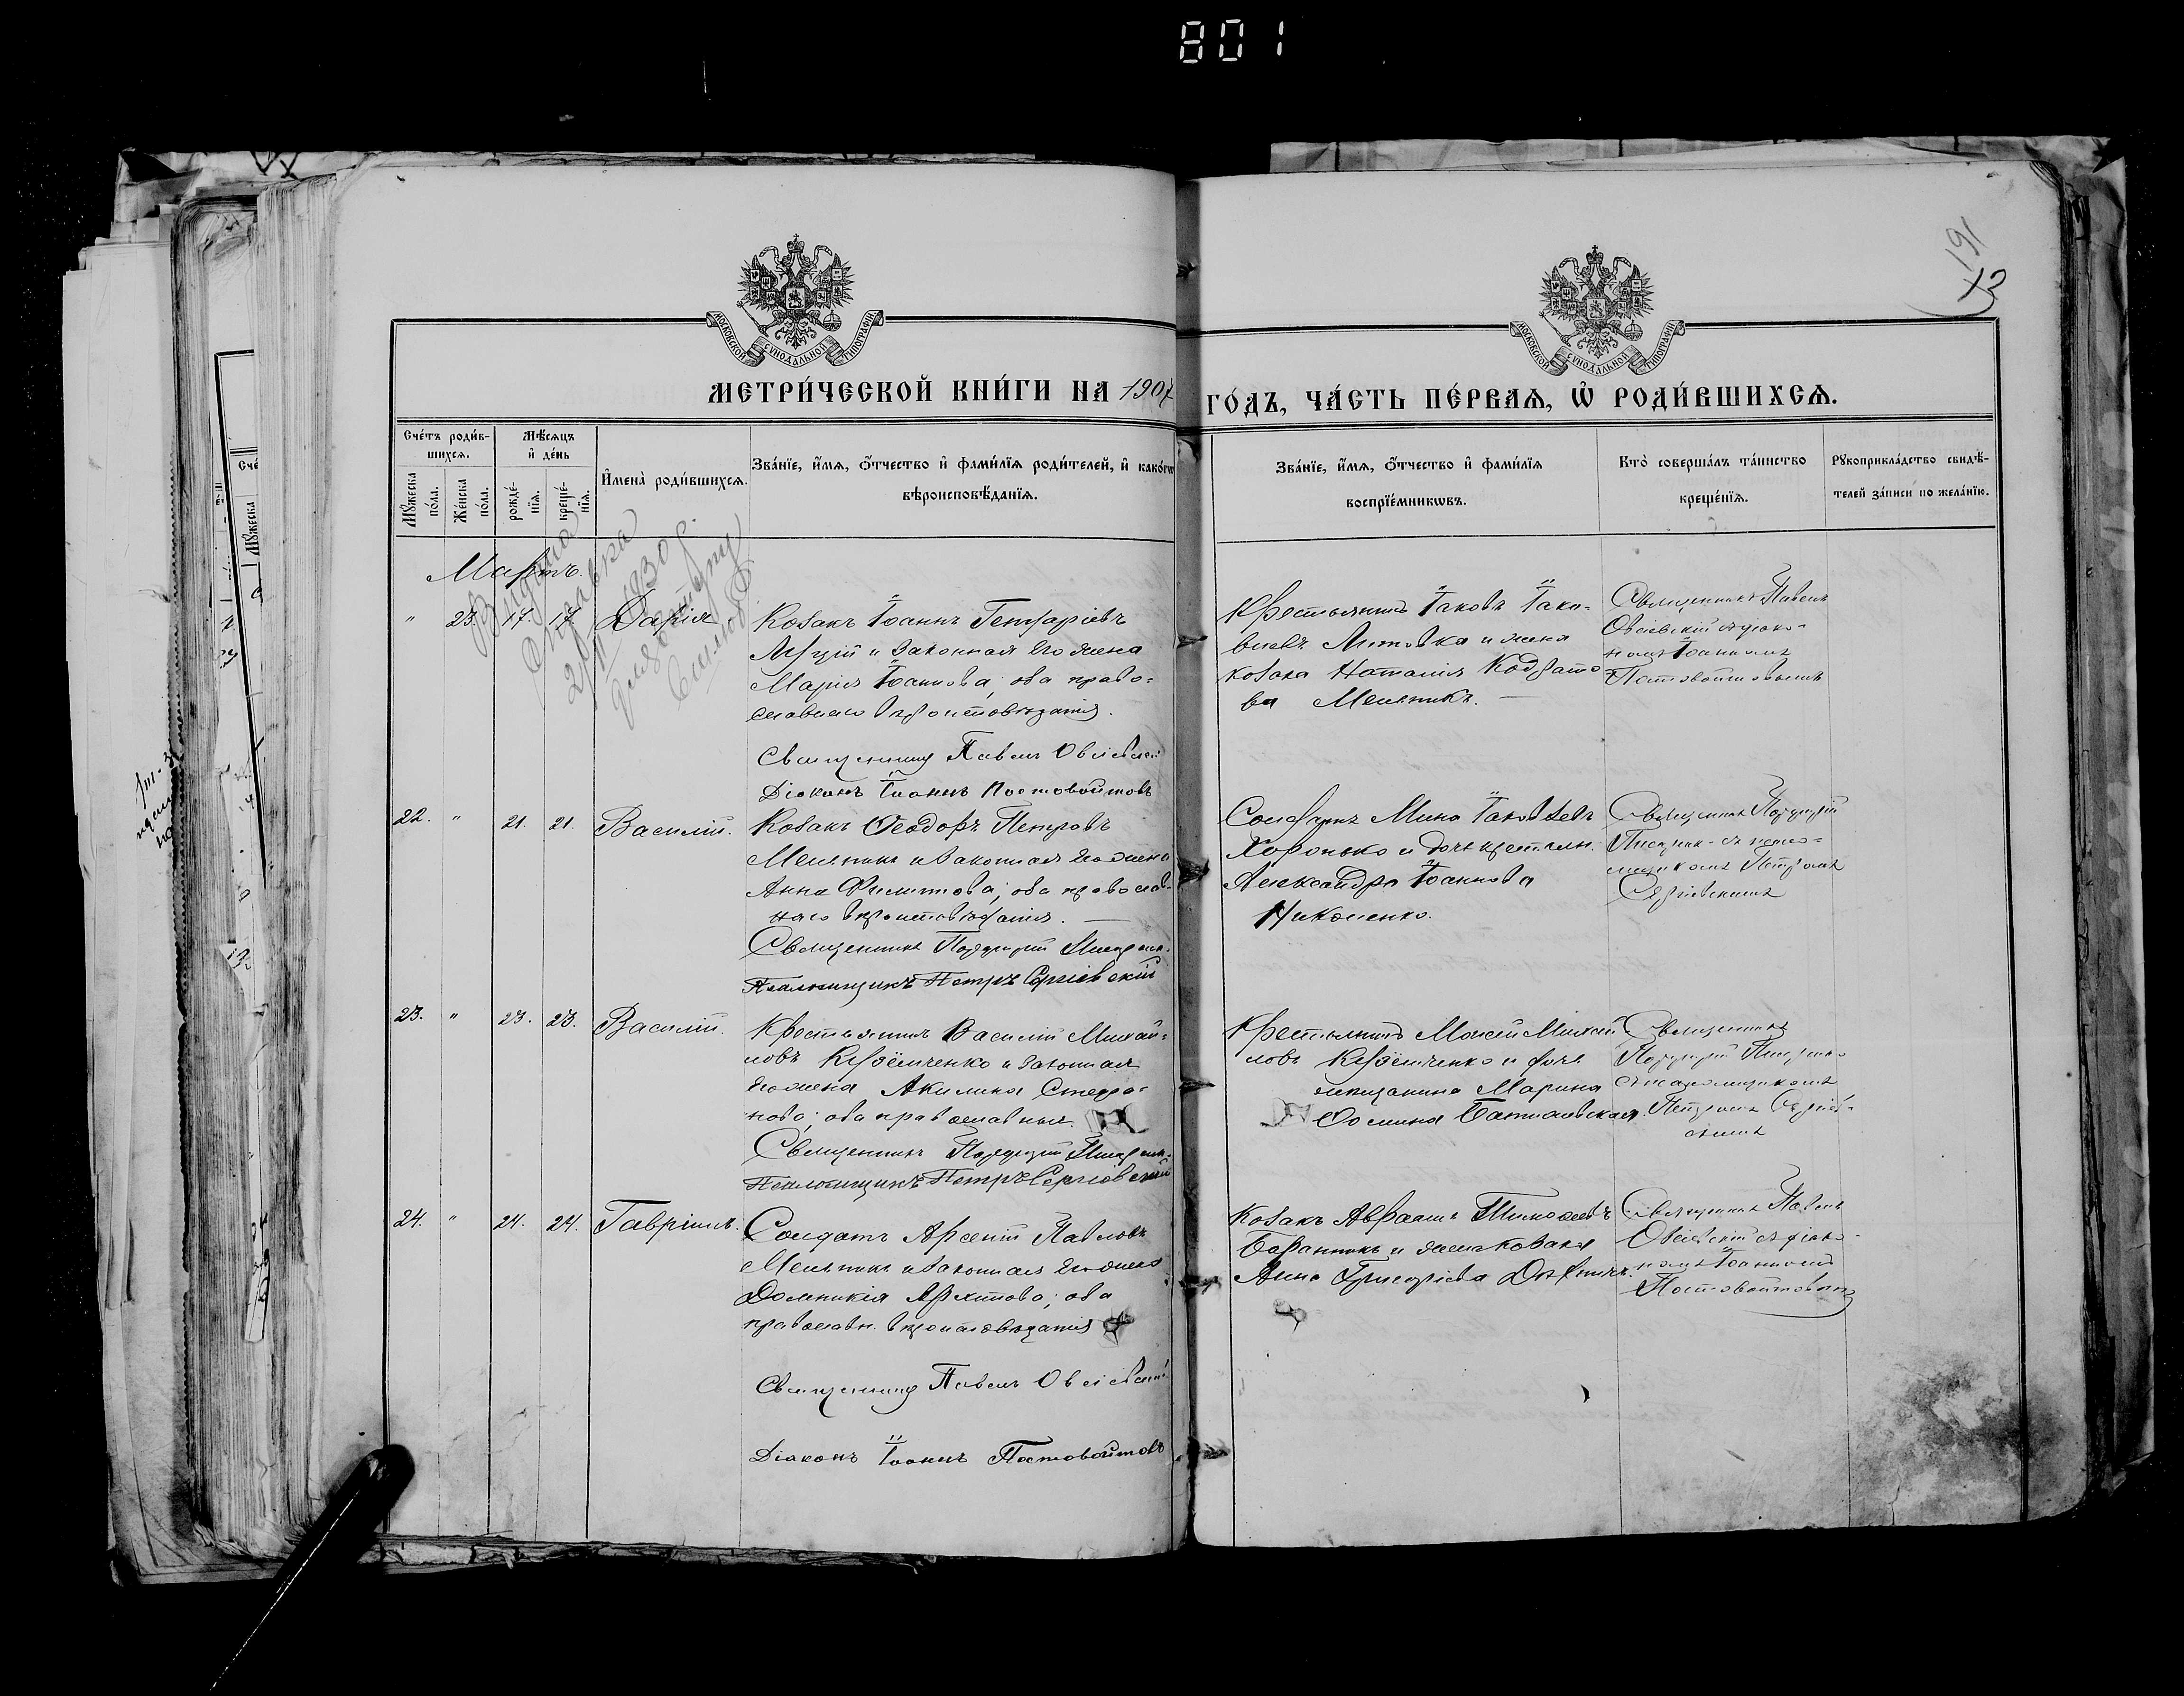 801
191
МОСКОВСКОЙ СѴНОДАЛЬНОЙ ТИПОГРАФІИ
МОСКОВСКОЙ СѴНОДАЛЬНОЙ ТИПОГРАФІИ
МЕТРИ́ЧЕСКОЙ КНИ́ГИ НА 1907
ГО́ДЪ, ЧА́СТЬ ПЕ́РВАѦ, Ѡ҆ РОДИ́ВШИХСѦ.
Сче́тъ роди́в-
шихсѧ.
Мꙋжеска по́ла.
Же́нска по́ла.
Мѣ́сѧцъ и҆ де́нь
рожде́-
нїѧ.
креще́-
нїѧ.
И҆мена̀ роди́вшихсѧ.
Зва́нїе, и҆́мѧ, ѻ҆́тчество и҆ фами́лїѧ роди́телей, и҆ како́гѡ
вѣроисповѣ́данїѧ.
Зва́нїе, и҆́мѧ, ѻ҆́тчество и҆ фами́лїѧ
воспрїе́мникѡвъ.
Кто̀ соверша́лъ та́инство
креще́нїѧ.
Рꙋкоприкла́дство свидѣ́-
телей за́писи по жела́нїю.
Мартъ.
" 23. 17. 17. Дарія
Козакъ Іоаннъ
и законная его жена
Марія Іоаннова; оба право-
славнаго вѣроисповѣданія.
Священникъ Павелъ Овсіевскій
Діаконъ Іоаннъ Постовойтовъ
Крестьянинъ Іаковъ Іако-
влевъ Литовка и жена
козака Наталія Кодрато-
ва Мельникъ.
Священникъ Павелъ
Овсіевскій съ діако-
номъ Іоанномъ
Постовойтовымъ
22. " 21. 21. Василій.
Козакъ Ѳеодоръ Петровъ
Мельникъ и законная его жена
Анна Филиппова; оба православ-
наго вѣроисповѣданія.
Священникъ
Псаломщикъ Петръ Сергіевскій
Солдатъ Мина Іаковлевъ
Хоронько и дочь крестьян.
Александра Іоаннова
Николенко.
Священникъ
съ псало-
мщикомъ Петромъ
Сергіевскимъ
23. " 23. 23. Василій.
Крестьянинъ Василій Михай-
ловъ и законная
его жена Акилина Стефа-
нова; оба православные.
Священникъ
Псаломщикъ Петръ Сергіевскій
Крестьянинъ Моисей Михай-
ловъ и дочь
мѣщанина Марина
Священникъ
съ псаломщикомъ
Петромъ Сергіев-
скимъ
24. " 24. 24. Гавріилъ.
Солдатъ Арсеній Павловъ
Мельникъ и законная его жена
Домникія Архипова; оба
православн. вѣроисповѣданія
Священникъ Павелъ Овсіевскій
Діаконъ Іоаннъ Постовойтовъ
Козакъ Авраамъ
Баранникъ и жена козака
Анна Григоріева
Священникъ Павелъ
Овсіевскій съ діако-
номъ Іоанномъ
Постовойтовымъ